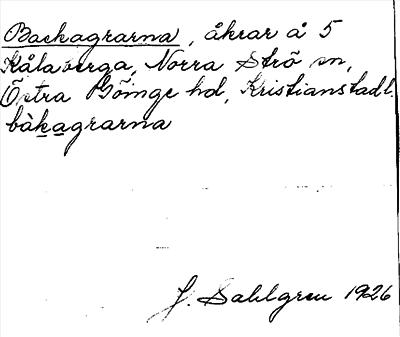 Backagrarna, åkrar å 5
Kålaverga, Norra Strö sn,
Östra Göinge hd, Kristianstadl.
bàkagrarna
J. Sahlgren 1926